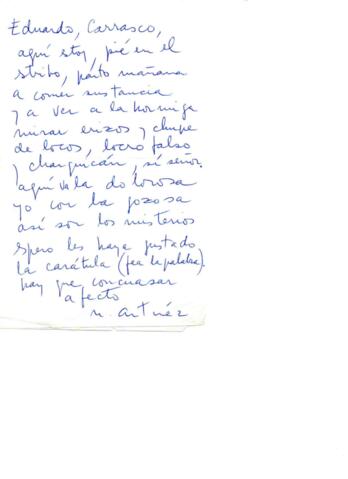 Eduardo, Carrasco,
aquí estoy, pié en el
stribo, párto mañana
a comer sustancia
y a ver a la hormiga
mirar erizos y chupe
de locos, locro falso
y charquicán, sí señor.
aquí va la dolorosa
yo con la gozosa
así son los misterios
spero les haya gustado
la carátula (fea la palabra).
hay que
afecto